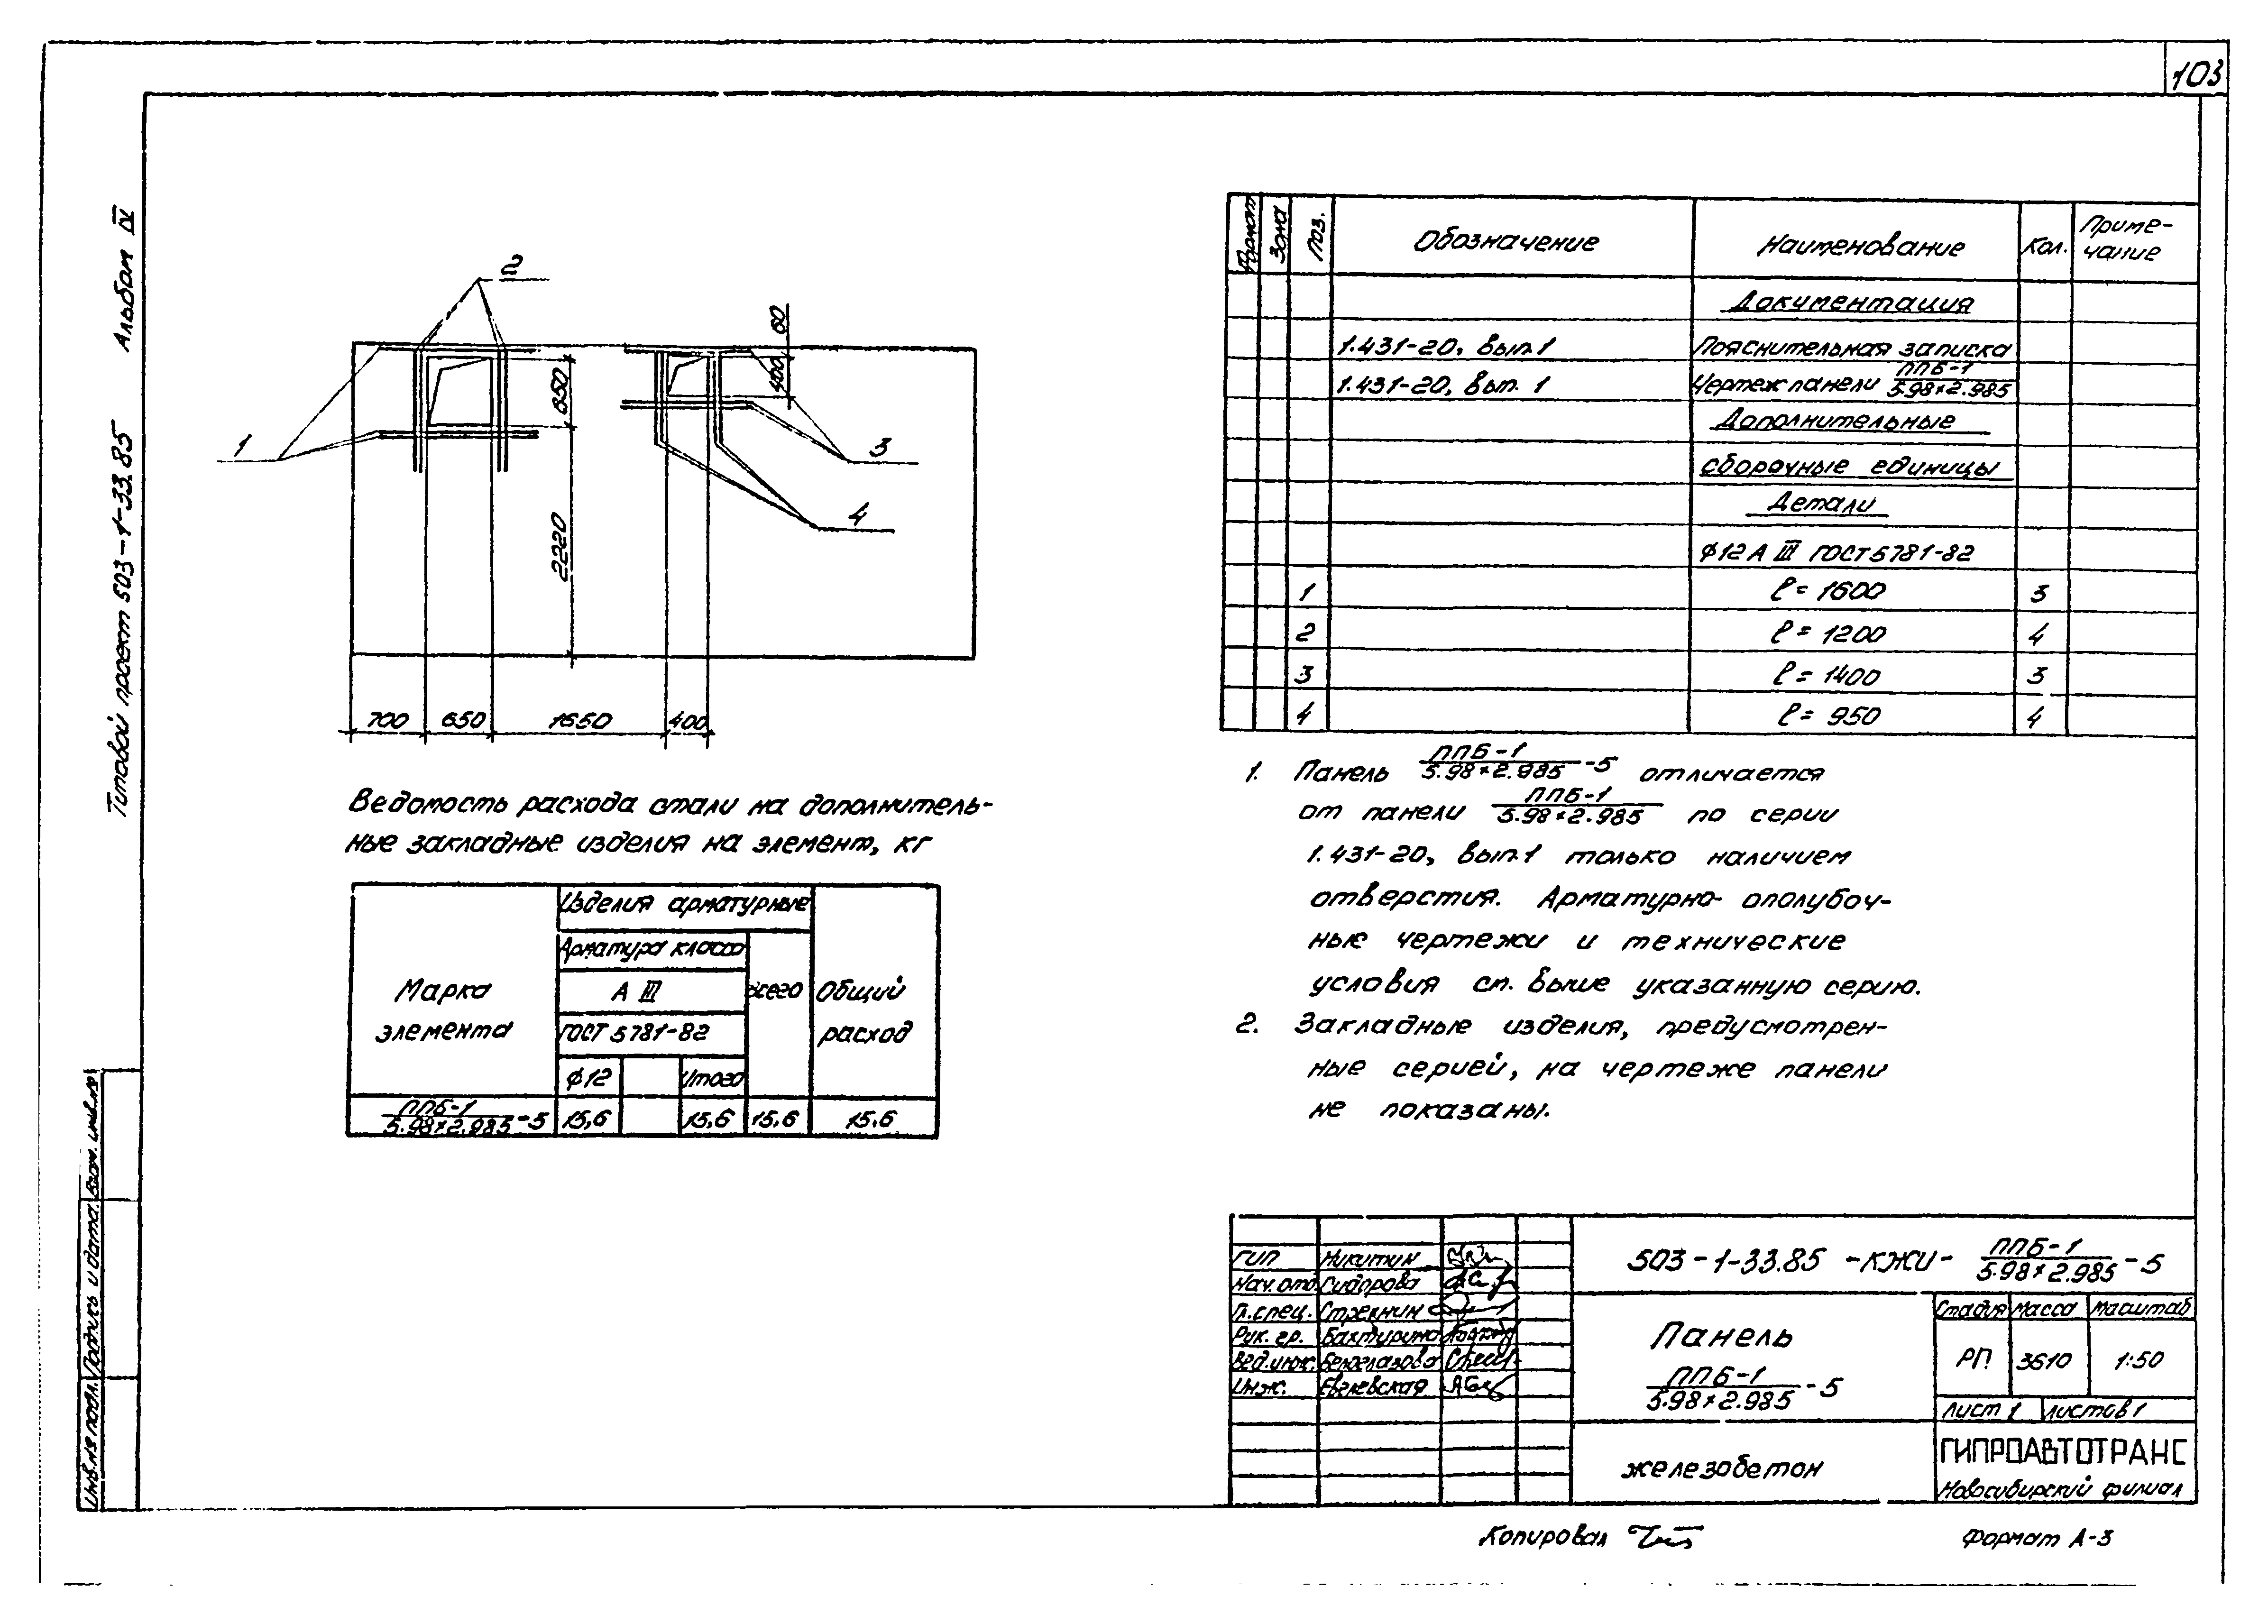 103
Альбом IV
Типовой проект 503-1-33.85
2
60
400
650
1
3
4
2220
700 650 1650 400
Формат Зона Поз. Обозначение Наименование Кол. Приме-
чание
Документация
1.431-20, вып.1 Пояснительная записка
1.431-20, вып. 1 Чертеж панели ППБ-1
5.98×2.985
Дополнительные
сборочные единицы
Детали
ϕ12 А III ГОСТ 5781-82
1 ℓ= 1600 3
2 ℓ= 1200 4
3 ℓ= 1400 3
4 ℓ= 950 4
1. Панель ППБ-1
5.98×2.985 -5 отличается
от панели ППБ-1
5.98×2.985 по серии
1.431-20, вып.1 только наличием
отверстия. Арматурно- ополубоч-
ные чертежи и технические
условия см. выше указанную серию.
2. Закладные изделия, предусмотрен-
ные серией, на чертеже панели
не показаны.
Ведомость расхода стали на дополнитель-
ные закладные изделия на элемент, кг
Марка
элемента
Изделия арматурные
Арматура класса
А III
ГОСТ 5781-82
ϕ12 Итого
Всего
Общий
расход
ППБ-1
5.98×2.985 -5 15,6 15,6 15,6 15,6
Инв.№ подл. Подпись и дата Взам. инв.№
ГИП Никитин
Нач. отд. Сидорова
Гл.спец. Стрекнин
Рук. гр. Бахтурина
Вед.инж.
Инж. Евлевская
503-1-33.85 -КЖИ- ППБ-1
5.98×2.985 -5
Панель
ППБ-1
5.98×2.985 -5
Стадия Масса Масштаб
РП 3610 1:50
Лист 1 Листов 1
железобетон
ГИПРОАВТОТРАНС
Новосибирский филиал
Копировал
Формат А-3